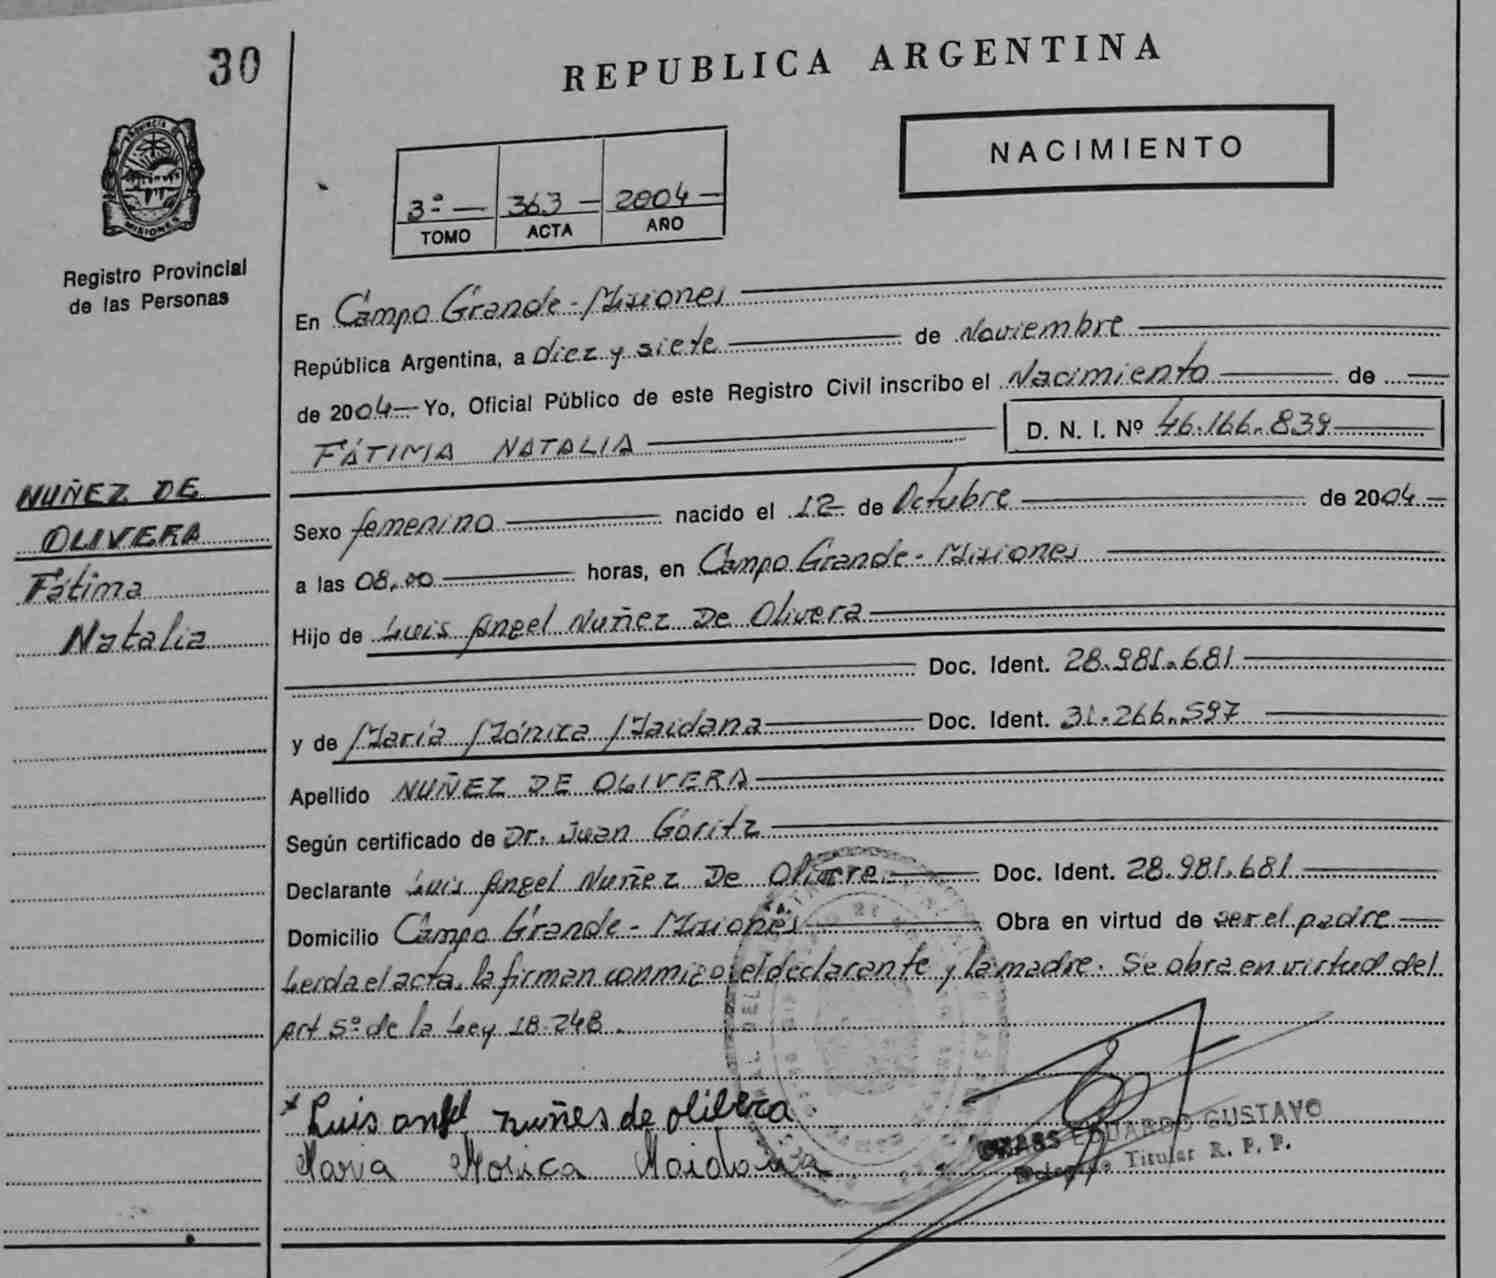 30
REPUBLICA ARGENTINA
NACIMIENTO
PROVINCIA DE
MISIONES
Registro Provincial
de las Personas
3º — 363 — 2004 —
TOMO ACTA AÑO
En Campo Grande - Misiones
República Argentina, a diez y siete de Noviembre
de 2004 — Yo, Oficial Público de este Registro Civil inscribo el Nacimiento de
FÁTIMA NATALIA D. N. I. Nº 46.166.839
NUÑEZ DE
OLIVERA
Fátima
Natalia
Sexo femenino nacido el 12 de Octubre de 2004
a las 08,00 horas, en Campo Grande - Misiones
Hijo de Luis Angel Nuñez De Olivera
Doc. Ident. 28.981.681
y de María Mónica Maidana Doc. Ident. 31.266.597
Apellido NUÑEZ DE OLIVERA
Según certificado de Dr. Juan Goritz
Declarante Luis Angel Nuñez De Doc. Ident. 28.981.681
Domicilio Campo Grande - Misiones Obra en virtud de ser el padre
Leída el acta, la firman conmigo el declarante y la madre. Se obra en virtud del
Art 5º de la Ley 18.248.
* Luis angel nuñes de olibera
Maria Monica Maidana
EDUARDO GUSTAVO
Titular R. P. P.